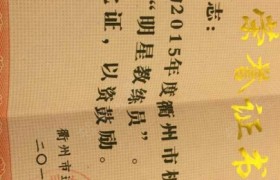 荣誉证书
志：
2015年度衢州市
“明星教练员”。
证，以资鼓励。
衢州市
二〇一